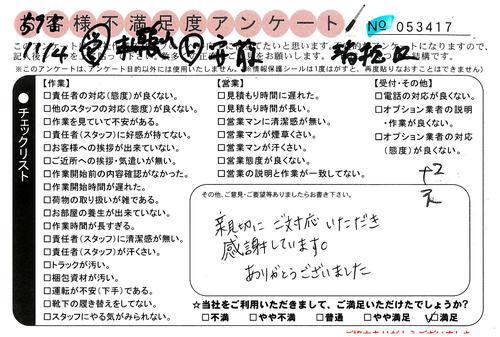 お客様不満足度アンケート
№ 053417
11/4
※このアンケートは、アンケート目的以外には使用いたしません。
チェックリスト
【作業】
□責任者の対応(態度)が良くない。
□他のスタッフの対応(態度)が良くない。
□作業を見ていて不安がある。
□責任者(スタッフ)に好感が持てない。
□お客様への挨拶が出来ていない。
□ご近所への挨拶・気遣いが無い。
□作業開始前の内容確認がなかった。
□作業開始時間が遅れた。
□荷物の取り扱いが雑である。
□お部屋の養生が出来ていない。
□作業時間が長すぎる。
□責任者(スタッフ)に清潔感が無い。
□責任者(スタッフ)が汗くさい。
□トラックが汚い。
□梱包資材が汚い。
□運転が不安(下手)である。
□靴下の履き替えをしてない。
□スタッフにやる気がみられない。
【営業】
□見積もり時間に遅れた。
□見積もり時間が長い。
□営業マンに清潔感が無い。
□営業マンが煙草くさい。
□営業マンが汗くさい。
□営業態度が良くない。
□営業の説明と作業が一致してない。
【受付・その他】
□電話の対応が良くない。
□オプション業者の説明
・作業が良くない。
□オプション業者の対応
(態度)が良くない。
+2
その他、ご意見・ご要望等ありましたらお書き下さい。
親切にご対応いただき
感謝しています。
ありがとうございました
☆当社をご利用いただきまして、ご満足いただけたでしょうか?
□不満 □やや不満 □普通 □やや満足 ☑満足